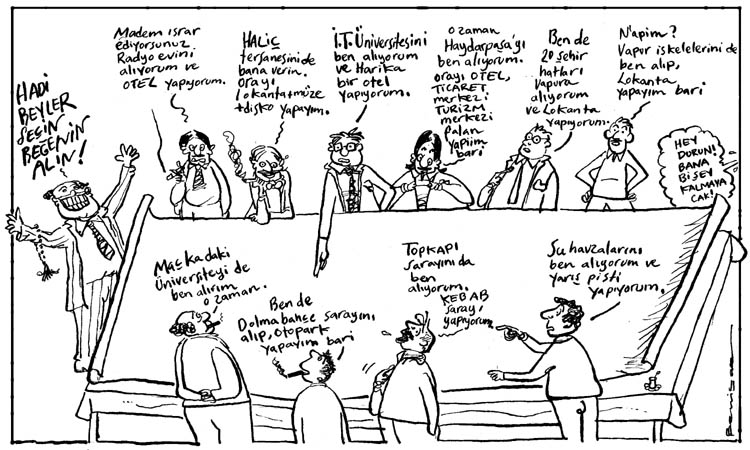 HADİ
BEYLER
SEÇİN
BEĞENİN
ALIN!
Madem ısrar
ediyorsunuz
Radyo evini
alıyorum ve
OTEL yapıyorum.
HALİÇ
tersanesini de
bana verin.
Orayı
Lokanta+müze
+disko yapayım.
İ.T. Üniversitesini
ben alıyorum
ve Harika
bir otel
yapıyorum.
O zaman
Haydarpaşa'yı
ben alıyorum.
orayı OTEL,
TİCARET
merkezi
TURİZM
merkezi
falan
yapıim
bari
Ben de
20 şehir
hatları
vapuru
alıyorum
ve Lokanta
yapıyorum.
N'apim?
Vapur iskelelerini de
ben alıp,
Lokanta
yapayım bari
HEY
DURUN!
BANA
Bİ ŞEY
KALMAYA
CAK!
Maçkadaki
Üniversiteyi de
ben alırım
o zaman.
Ben de
Dolmabahçe sarayını
alıp, otopark
yapayım bari
TOPKAPI
sarayını da
ben
alıyorum.
KEBAB
sarayı
yapıyorum
Su havzalarını
ben alıyorum ve
yarış pisti
yapıyorum.